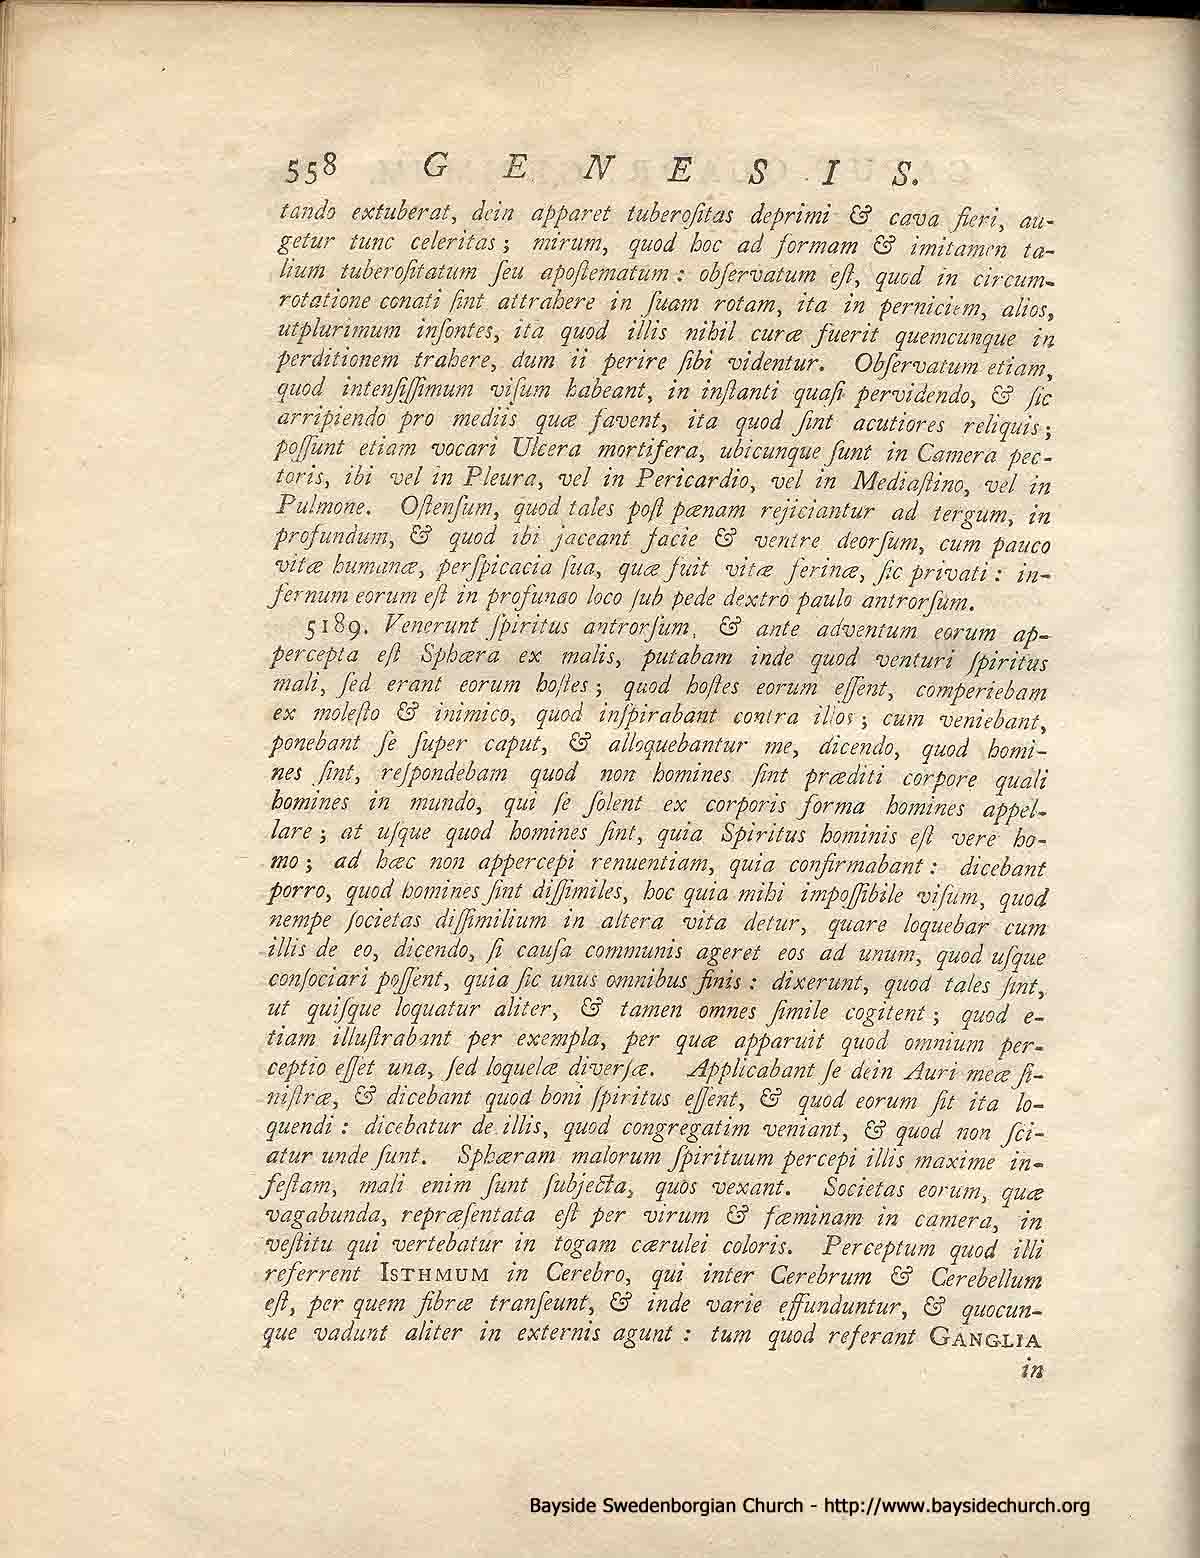 558 G E N E S I S.
tando extuberat, dein apparet tuberoſitas deprimi & cava fieri, au-
getur tunc celeritas ; mirum, quod hoc ad formam & imitamen ta-
lium tuberoſitatum ſeu apoſtematum : obſervatum eſt, quod in circum-
rotatione conati ſint attrahere in ſuam rotam, ita in perniciem, alios,
utplurimum inſontes, ita quod illis nihil curæ fuerit quemcunque in
perditionem trahere, dum ii perire ſibi videntur. Obſervatum etiam,
quod intenſiſſimum viſum habeant, in inſtanti quaſi pervidendo, & ſic
arripiendo pro mediis quæ favent, ita quod ſint acutiores reliquis ;
poſſunt etiam vocari Ulcera mortifera, ubicunque ſunt in Camera pec-
toris, ibi vel in Pleura, vel in Pericardio, vel in Mediaſtino, vel in
Pulmone. Oſtenſum, quod tales poſt pænam rejiciantur ad tergum, in
profundum, & quod ibi jaceant facie & ventre deorſum, cum pauco
vitæ humanæ, perſpicacia ſua, quæ fuit vitæ ferinæ, ſic privati : in-
fernum eorum eſt in profundo loco ſub pede dextro paulo antrorſum.
5189. Venerunt ſpiritus antrorſum, & ante adventum eorum ap-
percepta eſt Sphæra ex malis, putabam inde quod venturi ſpiritus
mali, ſed erant eorum hoſtes ; quod hoſtes eorum eſſent, comperiebam
ex moleſto & inimico, quod inſpirabant contra illos ; cum veniebant,
ponebant ſe ſuper caput, & alloquebantur me, dicendo, quod homi-
nes ſint, reſpondebam quod non homines ſint præditi corpore quali
homines in mundo, qui ſe ſolent ex corporis forma homines appel-
lare ; at uſque quod homines ſint, quia Spiritus hominis eſt vere ho-
mo ; ad hæc non appercepi renuentiam, quia confirmabant : dicebant
porro, quod homines ſint diſſimiles, hoc quia mihi impoſſibile viſum, quod
nempe ſocietas diſſimilium in altera vita detur, quare loquebar cum
illis de eo, dicendo, ſi cauſa communis ageret eos ad unum, quod uſque
conſociari poſſent, quia ſic unus omnibus finis : dixerunt, quod tales ſint,
ut quiſque loquatur aliter, & tamen omnes ſimile cogitent ; quod e-
tiam illuſtrabant per exempla, per quæ apparuit quod omnium per-
ceptio eſſet una, ſed loquelæ diverſæ. Applicabant ſe dein Auri meæ ſi-
niſtræ, & dicebant quod boni ſpiritus eſſent, & quod eorum ſit ita lo-
quendi : dicebatur de illis, quod congregatim veniant, & quod non ſci-
atur unde ſunt. Sphæram malorum ſpirituum percepi illis maxime in-
feſtam, mali enim ſunt ſubjecta, quos vexant. Societas eorum, quæ
vagabunda, repræſentata eſt per virum & fæminam in camera, in
veſtitu qui vertebatur in togam cærulei coloris. Perceptum quod illi
referrent ISTHMUM in Cerebro, qui inter Cerebrum & Cerebellum
eſt, per quem fibræ tranſeunt, & inde varie effunduntur, & quocun-
que vadunt aliter in externis agunt : tum quod referant GANGLIA
in
Bayside Swedenborgian Church - http://www.baysidechurch.org